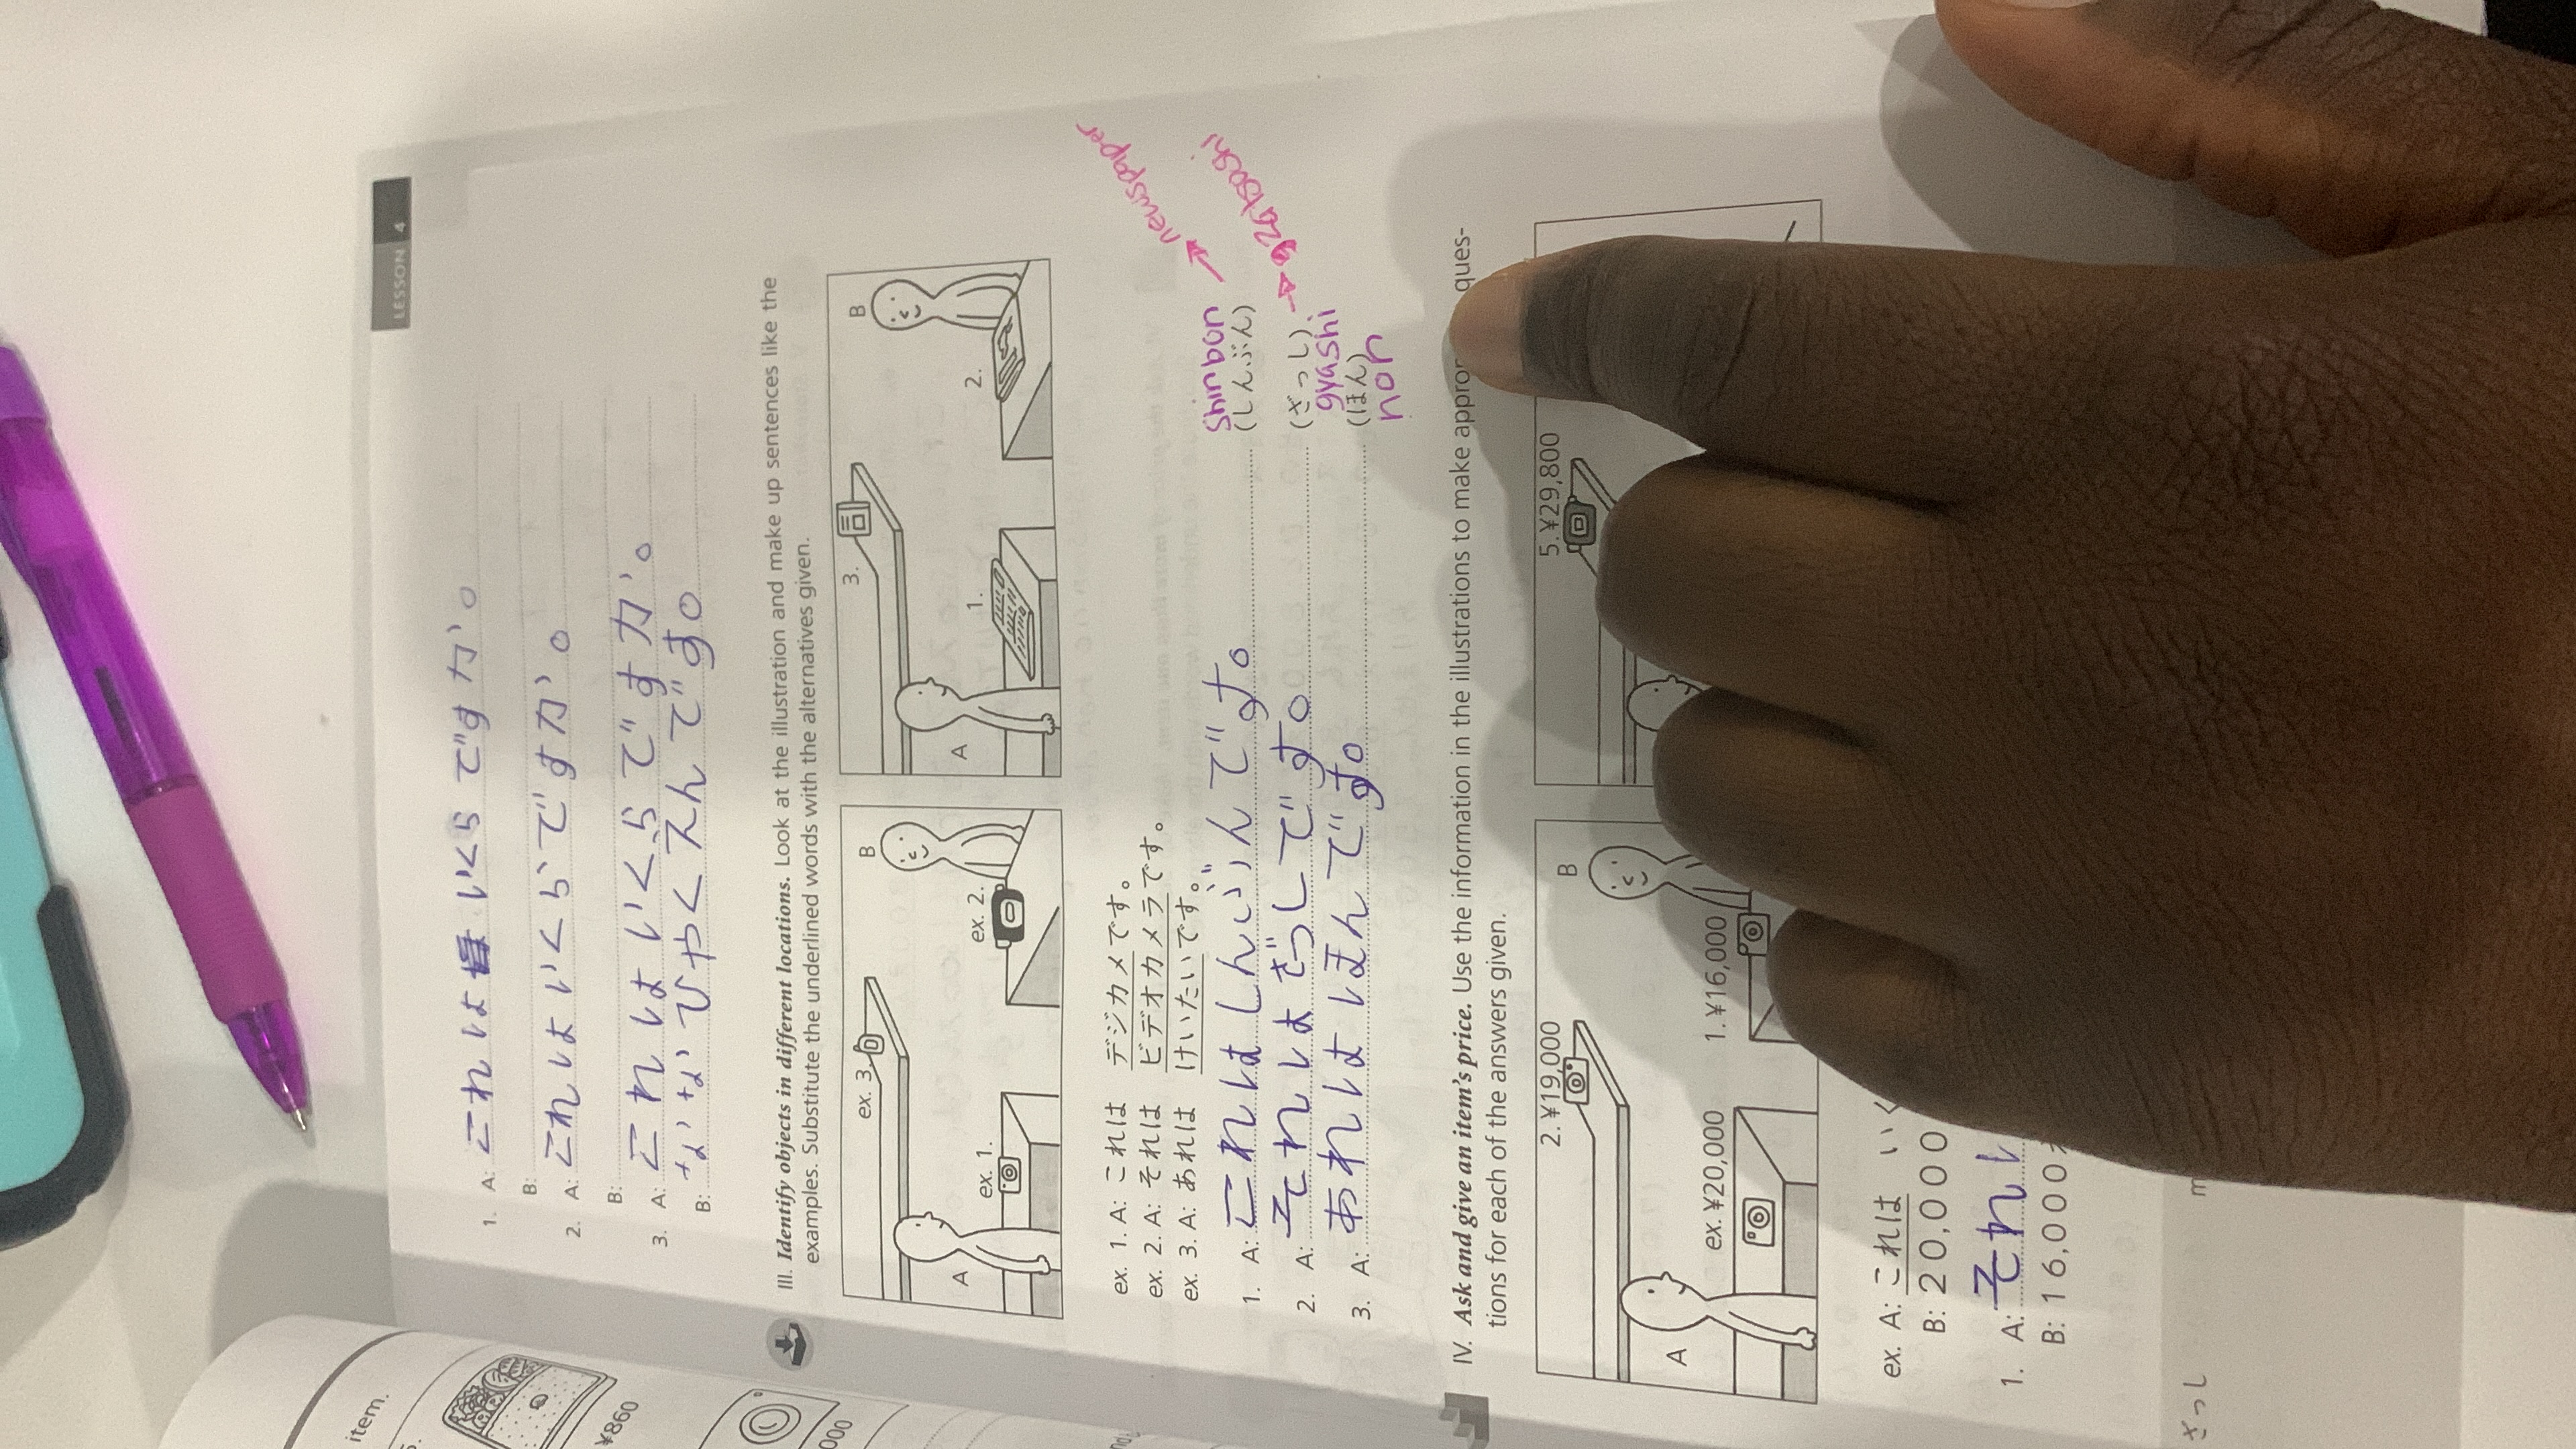 item.
5.
¥860
000
LESSON 4
1. A: これは いくらですか。
B:
2. A: これはいくらですか。
B:
3. A: これはいくらですか。
B: ななひやくえんです。
III. Identify objects in different locations. Look at the illustration and make up sentences like the
examples. Substitute the underlined words with the alternatives given.
ex. 3.
B
A
ex. 1.
ex. 2.
3.
B
A
1.
2.
ex. 1. A: これは デジカメです。
ex. 2. A: それは ビデオカメラです。
ex. 3. A: あれは けいたいです。
newspaper
shinbon
1. A: これはしんぶんです。 (しんぶん)
2. A: それはざっしです。 (ざっし)
gzatsoshi
gyashi
3. A: あれはほんです。 (ほん)
non
IV. Ask and give an item's price. Use the information in the illustrations to make ques-
tions for each of the answers given.
2. ¥19,000
B
A
ex. ¥20,000
1. ¥16,000
5. ¥29,800
ex. A: これは いく
B: 20,000
1. A: それ
B: 16,000
ざっし
m